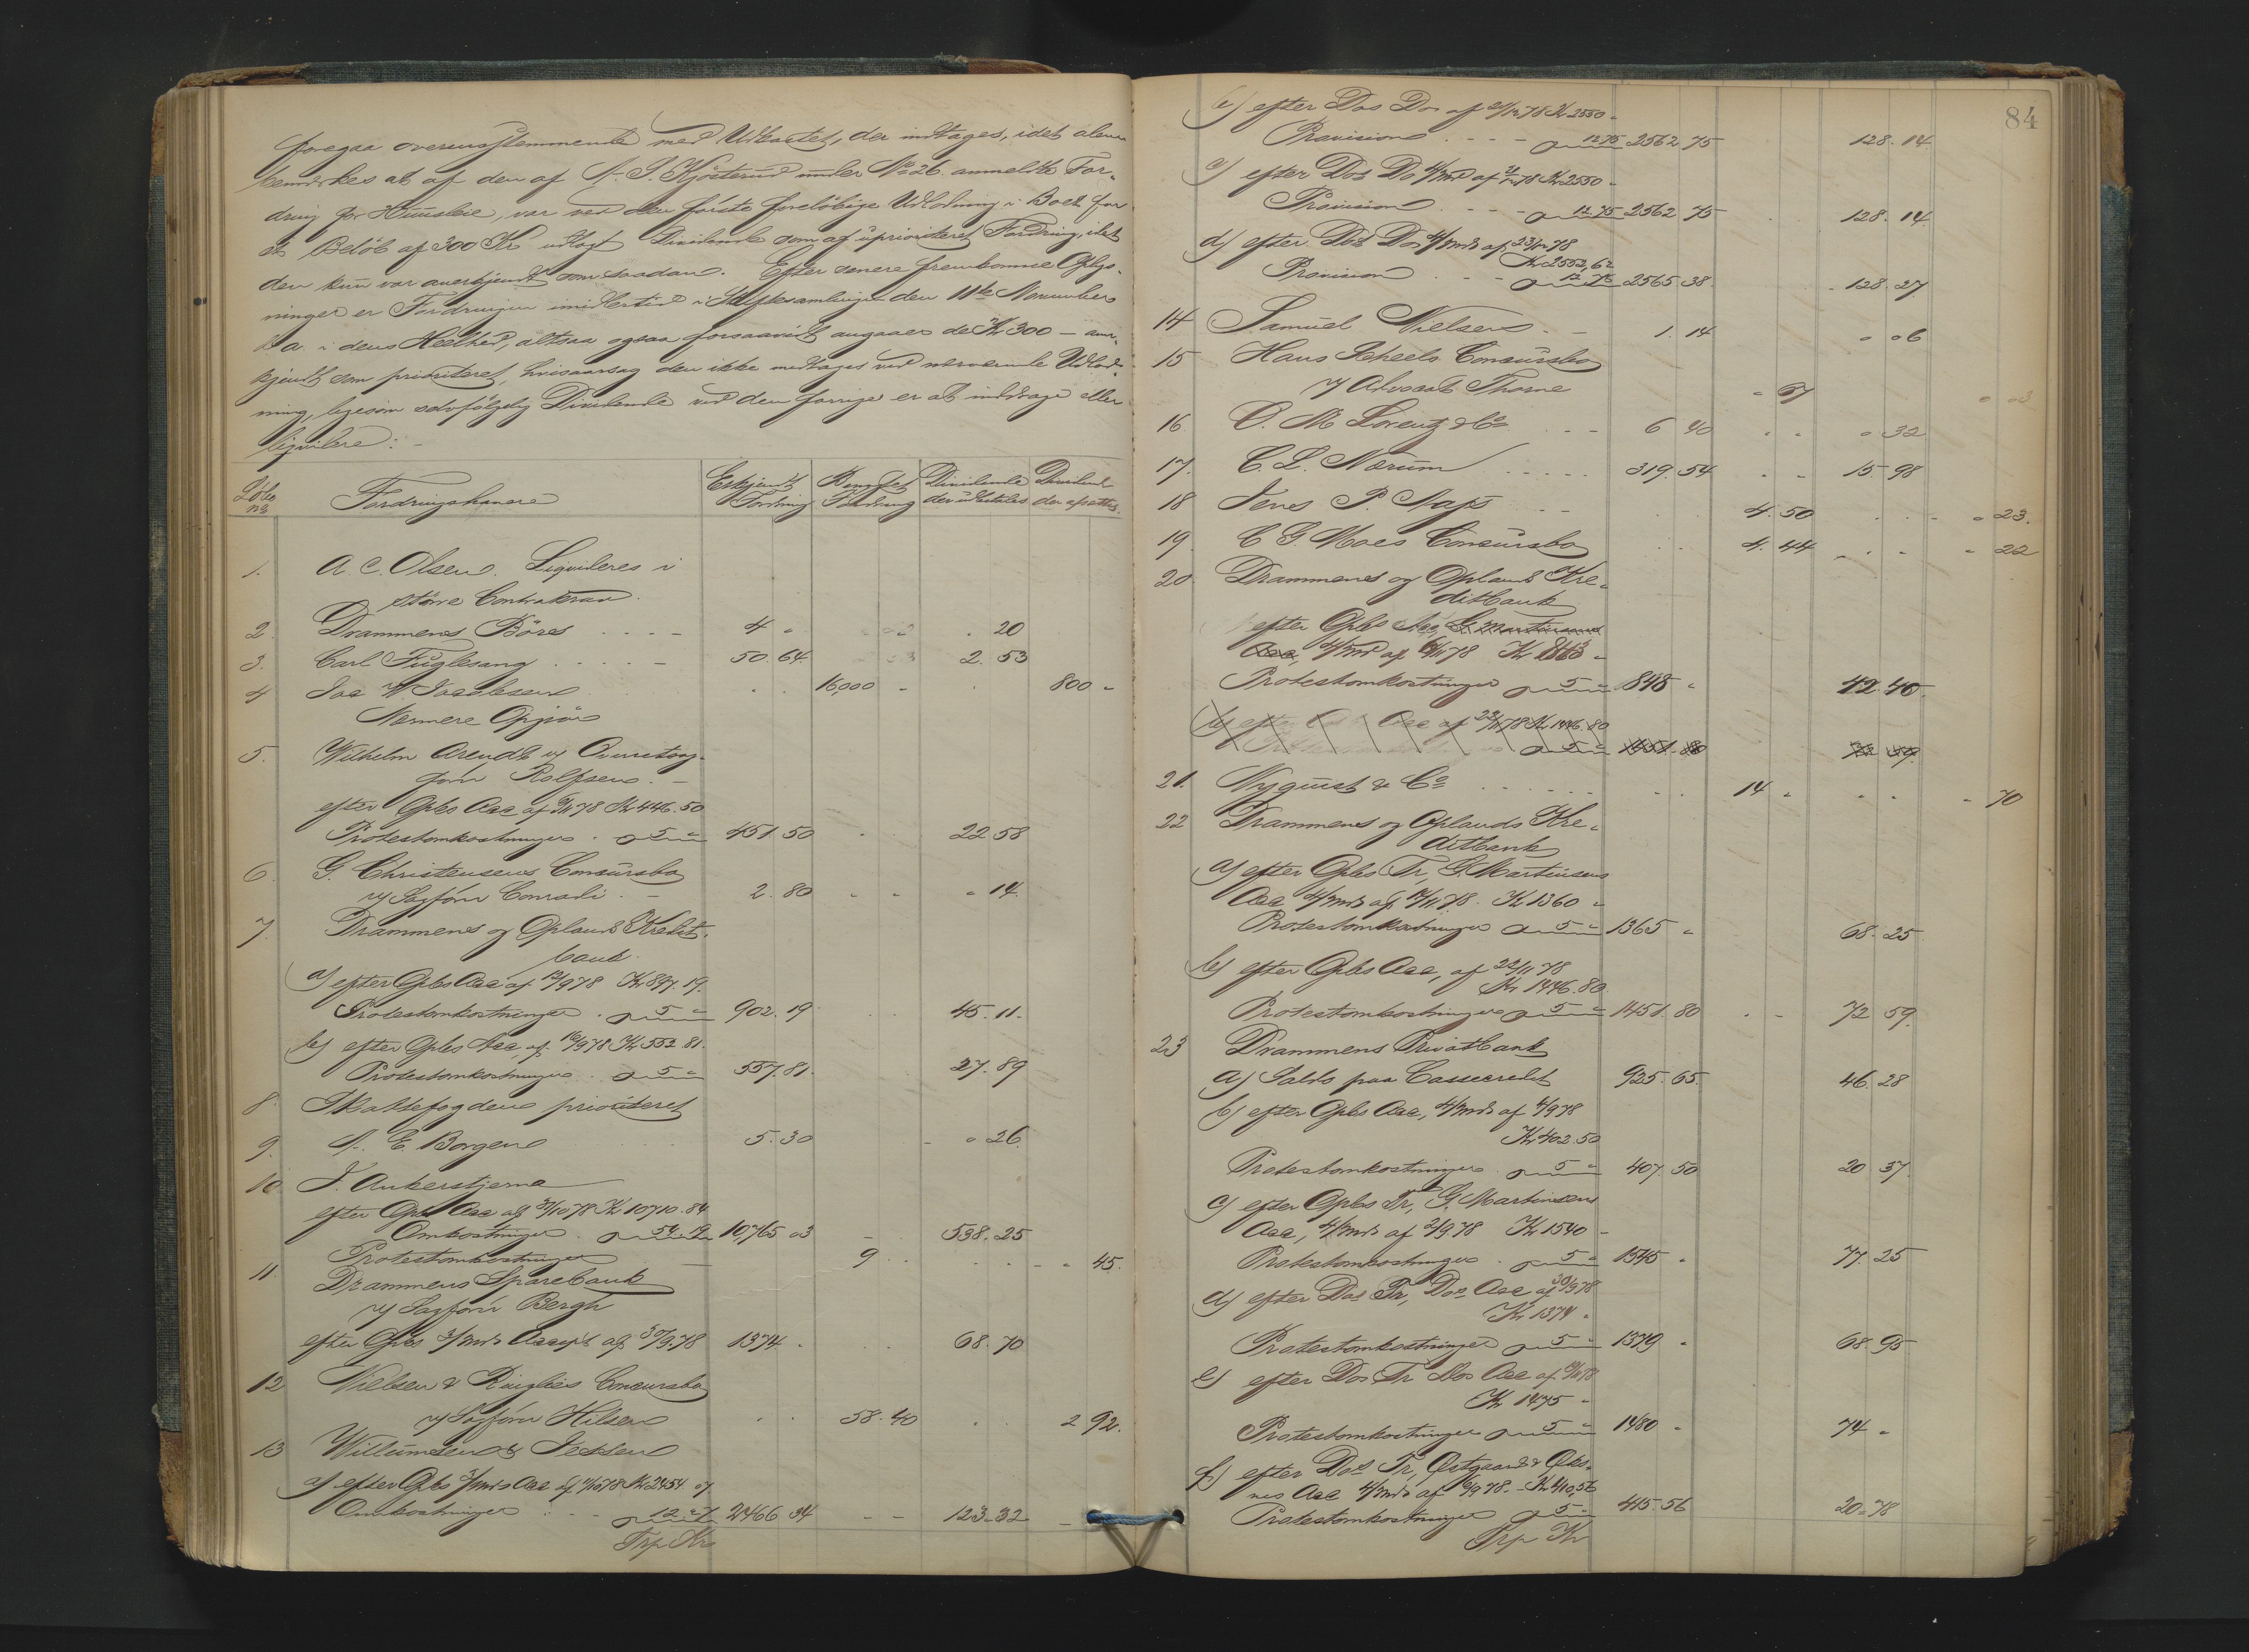 foregaa overensstemmende med Udkastet, der indtages, idet alene
bemærkes at af den af A. S. Kjösterud under No 26 anmeldte For-
dring for Huusleie, var ved den første foreløbige Udlodning i Boet for
et Beløb af 300 Kr udlagt Dividende som af uprioriteret Fordring, idet
den kun var anerkjendt som saadan. Efter senere fremkomne Oplys-
ninger er Fordringen imidlertid i Skiftesamlingen den 11te November
d. a. i dens Heelhed, altsaa ogsaa forsaavidt angaaer de Kr 300 – aner-
kjendt som prioriteret, hvisaarsag den ikke medtages ved nærværende Udlod-
ning, ligesom selvfølgelig Dividende ved den forrige er at inddrage eller
liquidere: –
Løbe No Fordringshavere Erkjendt Fordring Benegtet Fordring Dividende der udbetales Dividende der afsættes
1. A. C. Olsen. Liqvideres i
større Contrakrav.
2. Drammens Börs 4 " . 20
3. Carl Fuglesang 50. 64. 2. 53
4 Joa W Jacobsen 16,000 - 800 "
Nærmere Opgjör
5. Wilhelm Arendt v/ Overretssag-
förer Rolfsen. –
efter Gjbs Acc af 78 Kr 446. 50
Protestomkostninger 5 " 451. 50 22 58
6. G. Christensens Concursbo
v/ Sagförer Conradi 2. 80 " 14.
7. Drammens og Oplands Kredit-
bank
a) efter Gjbs Acc af 12/9 78 Kr 897. 19.
Protestomkostninger 5 " 902. 19 45. 11.
b) efter Gjbs Acc, af 16/9 78 Kr 552. 81.
Protestomkostninger 5 " 557. 81. 27. 89
8. Skattefogden prioriteret
9. A. E. Borgen 5. 30 " 26.
10 J. Ankerstjerne
efter Gjbs Acc af 3/10 78 Kr 10710. 84
Omkostninger 54. 19 10,765 03 538. 25
Protestomkostninger 9 " 45.
11. Drammens Sparebank
v/ Sagförer Bergh
efter Gjbs 3/mds Accept af 30/9. 78 1374 . 68. 70
12 Nielsen & Ringlies Concursbo
v/ Sagförer Hilsen 58. 40 2 92.
13 Willumsen & Jessen
a) efter Gjbs 3/mds Acc af 11/10 78 Kr 2454 07
Omkostninger 12 27 2466 34 123. 32
Trp Kr
84
b) efter Dos Dos af 21/12 78 Kr 2550 "
Provision 12 75 2562 75 128. 14
c) efter Dos Do 4/md af 78 Kr 2550 "
Provision 12. 75 2562 75 128. 14.
d) efter Dos Dos 4/mds af 23/12 78
Kr 2552,62
Provision 12 76 2565. 38. 128. 27
14 Samuel Nielsen 1. 14 " 06
15 Hans Kheels Concursbo
v/ Advocat Thorne
16. O. M Lorentz & Co 6 40 " 32
17. C. L. Nærum 319. 54 15. 98
18 Jens P. Aass 4. 50 " 23.
19. C G. Moes Concursbo 4. 44 " 22
20. Drammens og Oplands Kre-
ditbank
efter Gjbs Acc, G. Martinsens
Acc, 4/md af 6/11 78 Kr 843 "
Protestomkostninger 5 " 848 " 42. 40.
b) efter Acc af 22/11 78 Kr 1446. 80
5 " 1451. 80 72 59.
21. Nyquist & Co 14 " " 70
22 Drammens og Oplands Kre-
ditbank
a) efter Gjbs Tr, G. Martinsens
Acc 4/mds af 78. Kr 1360 "
Protestomkostninger 5 " 1365 " 68. 25
b) efter Gjbs Acc, af 22/11 78
Kr 1446. 80
Protestomkostninger 5 " 1451. 80 72 59.
23 Drammens Privatbank
a) Saldo paa Cassecredit 925. 65. 46. 28
b) efter Gjbs Acc, 4/mds af 4/9 78
Kr 402. 50
Protestomkostninger 5 " 407. 50 20 37.
c) efter Gjbs Tr, G. Martinsens
Acc, 4/mds af 2/9 78 Kr 1540 –
Protestomkostninger 5 " 1545 " 77. 25
d) efter Dos Tr, Dos Acc af 30/9 78
Kr 1374 "
Protestomkostninger 5 " 1379 " 68. 95
e) efter Dos Tr Dos Acc af 78
Kr 1475 "
Protestomkostninger 5 " 1480 " 74 "
f) efter Dos Tr, Östgaard & Öks-
nes Acc 4/mds af 9/9 78. – Kr 410,56
Protestomkostninger 5 " 415. 56 20. 78
Trp Kr